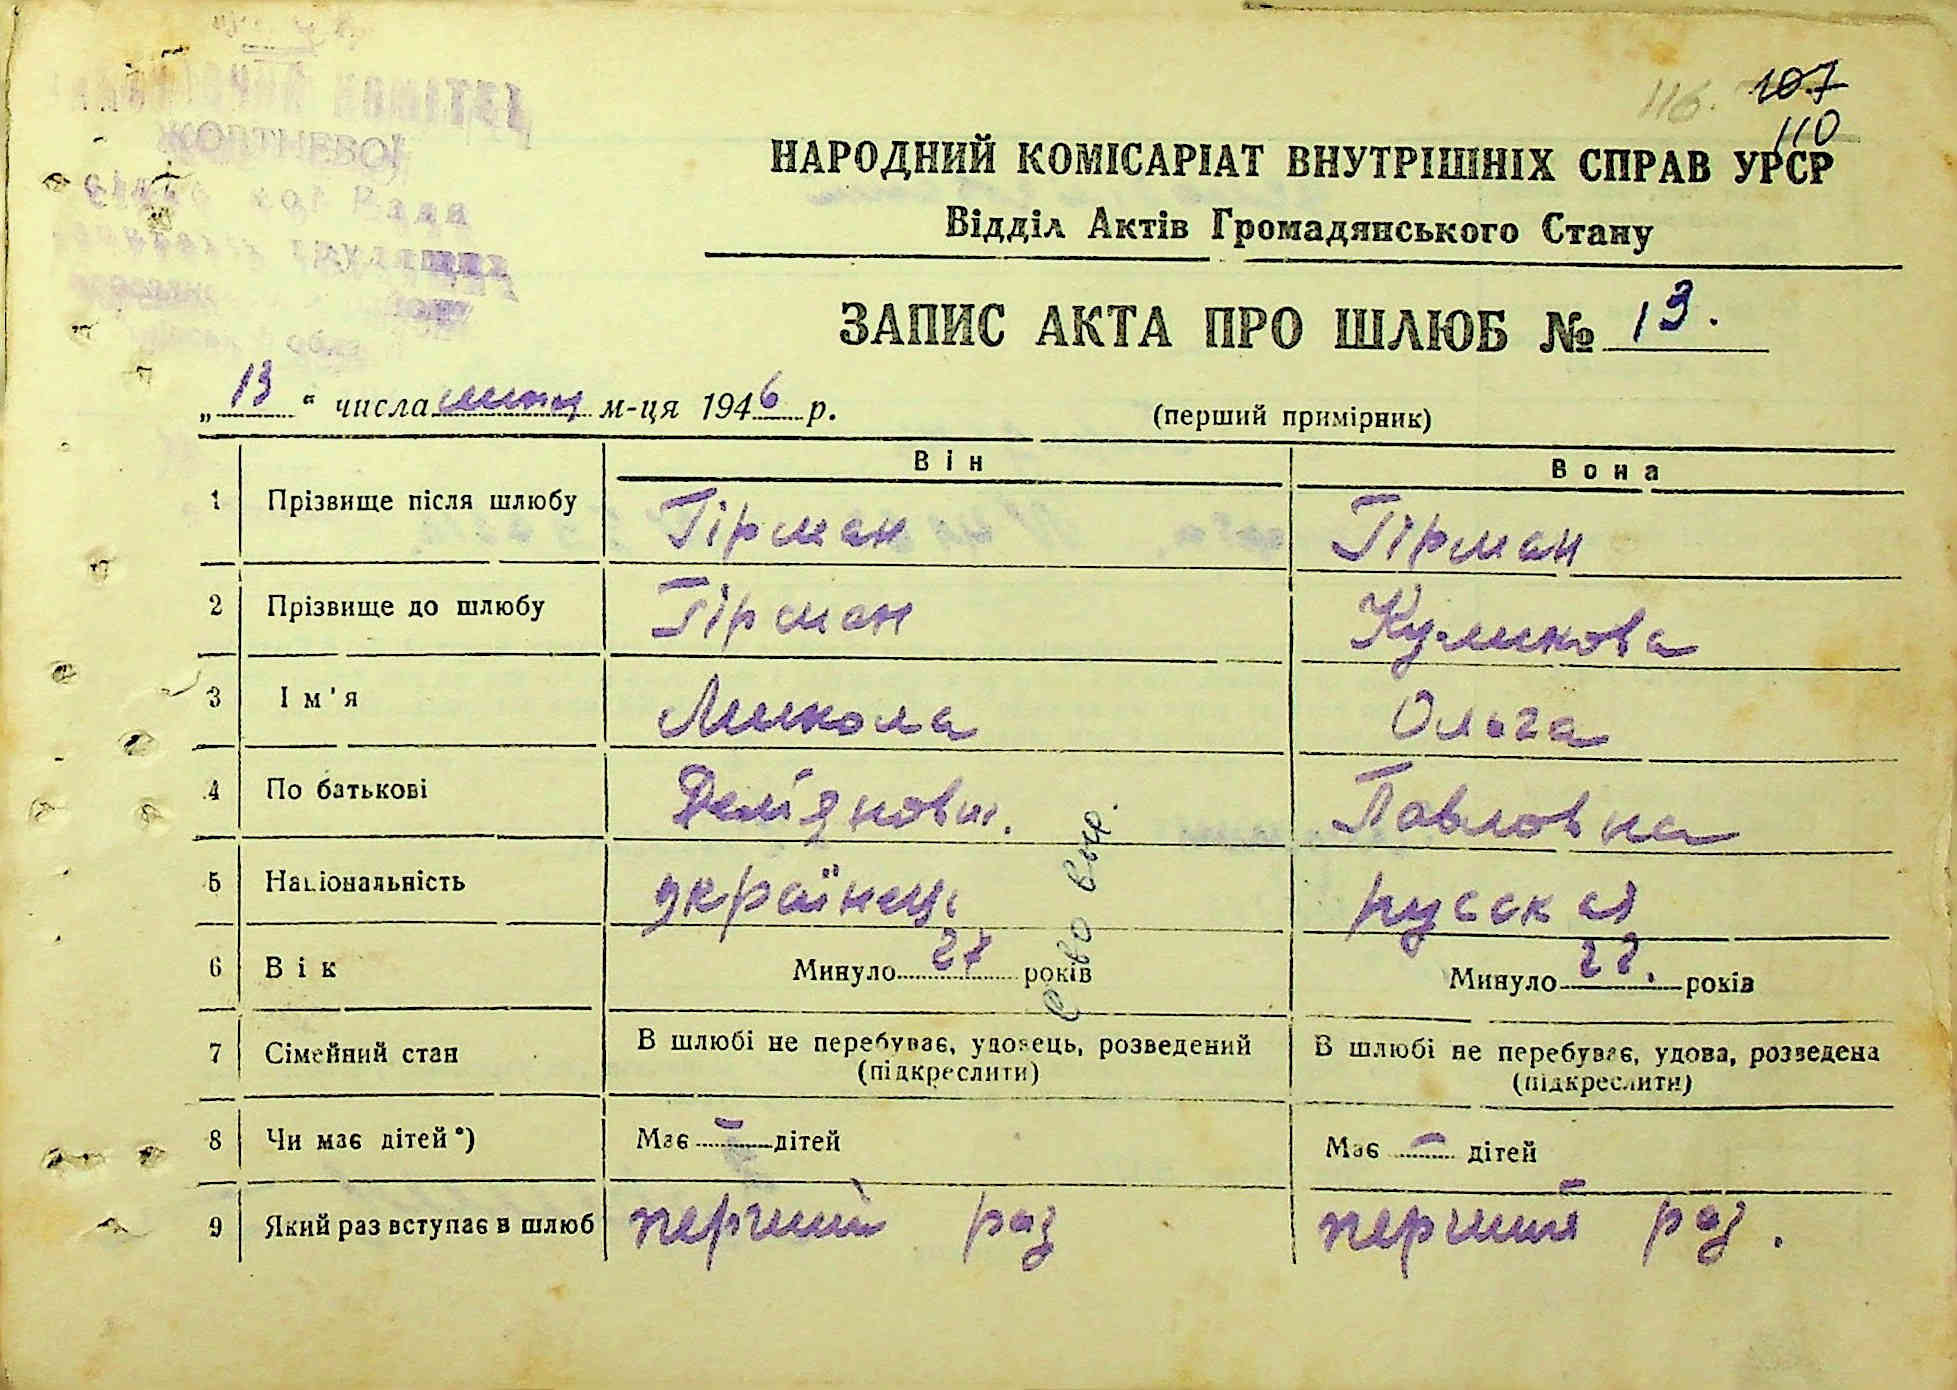 116. 107
110
ЖОВТНЕВОЇ
НАРОДНИЙ КОМІСАРІАТ ВНУТРІШНІХ СПРАВ УРСР
Відділ Актів Громадянського Стану
ЗАПИС АКТА ПРО ШЛЮБ № 13.
„13“ числа м-ця 1946 р. (перший примірник)
Він Вона
1 Прізвище після шлюбу Гірман Гірман
2 Прізвище до шлюбу Гірман Куликова
3 Ім'я Микола Ольга
4 По батькові Дем'янович. Павловна
5 Національність українець русская
6 Вік Минуло 27 років Минуло 22. років
7 Сімейний стан В шлюбі не перебуває, удовець, розведений (підкреслити) В шлюбі не перебуває, удова, розведена (підкреслити)
8 Чи має дітей*) Має — дітей Має — дітей
9 Який раз вступає в шлюб перший раз перший раз.